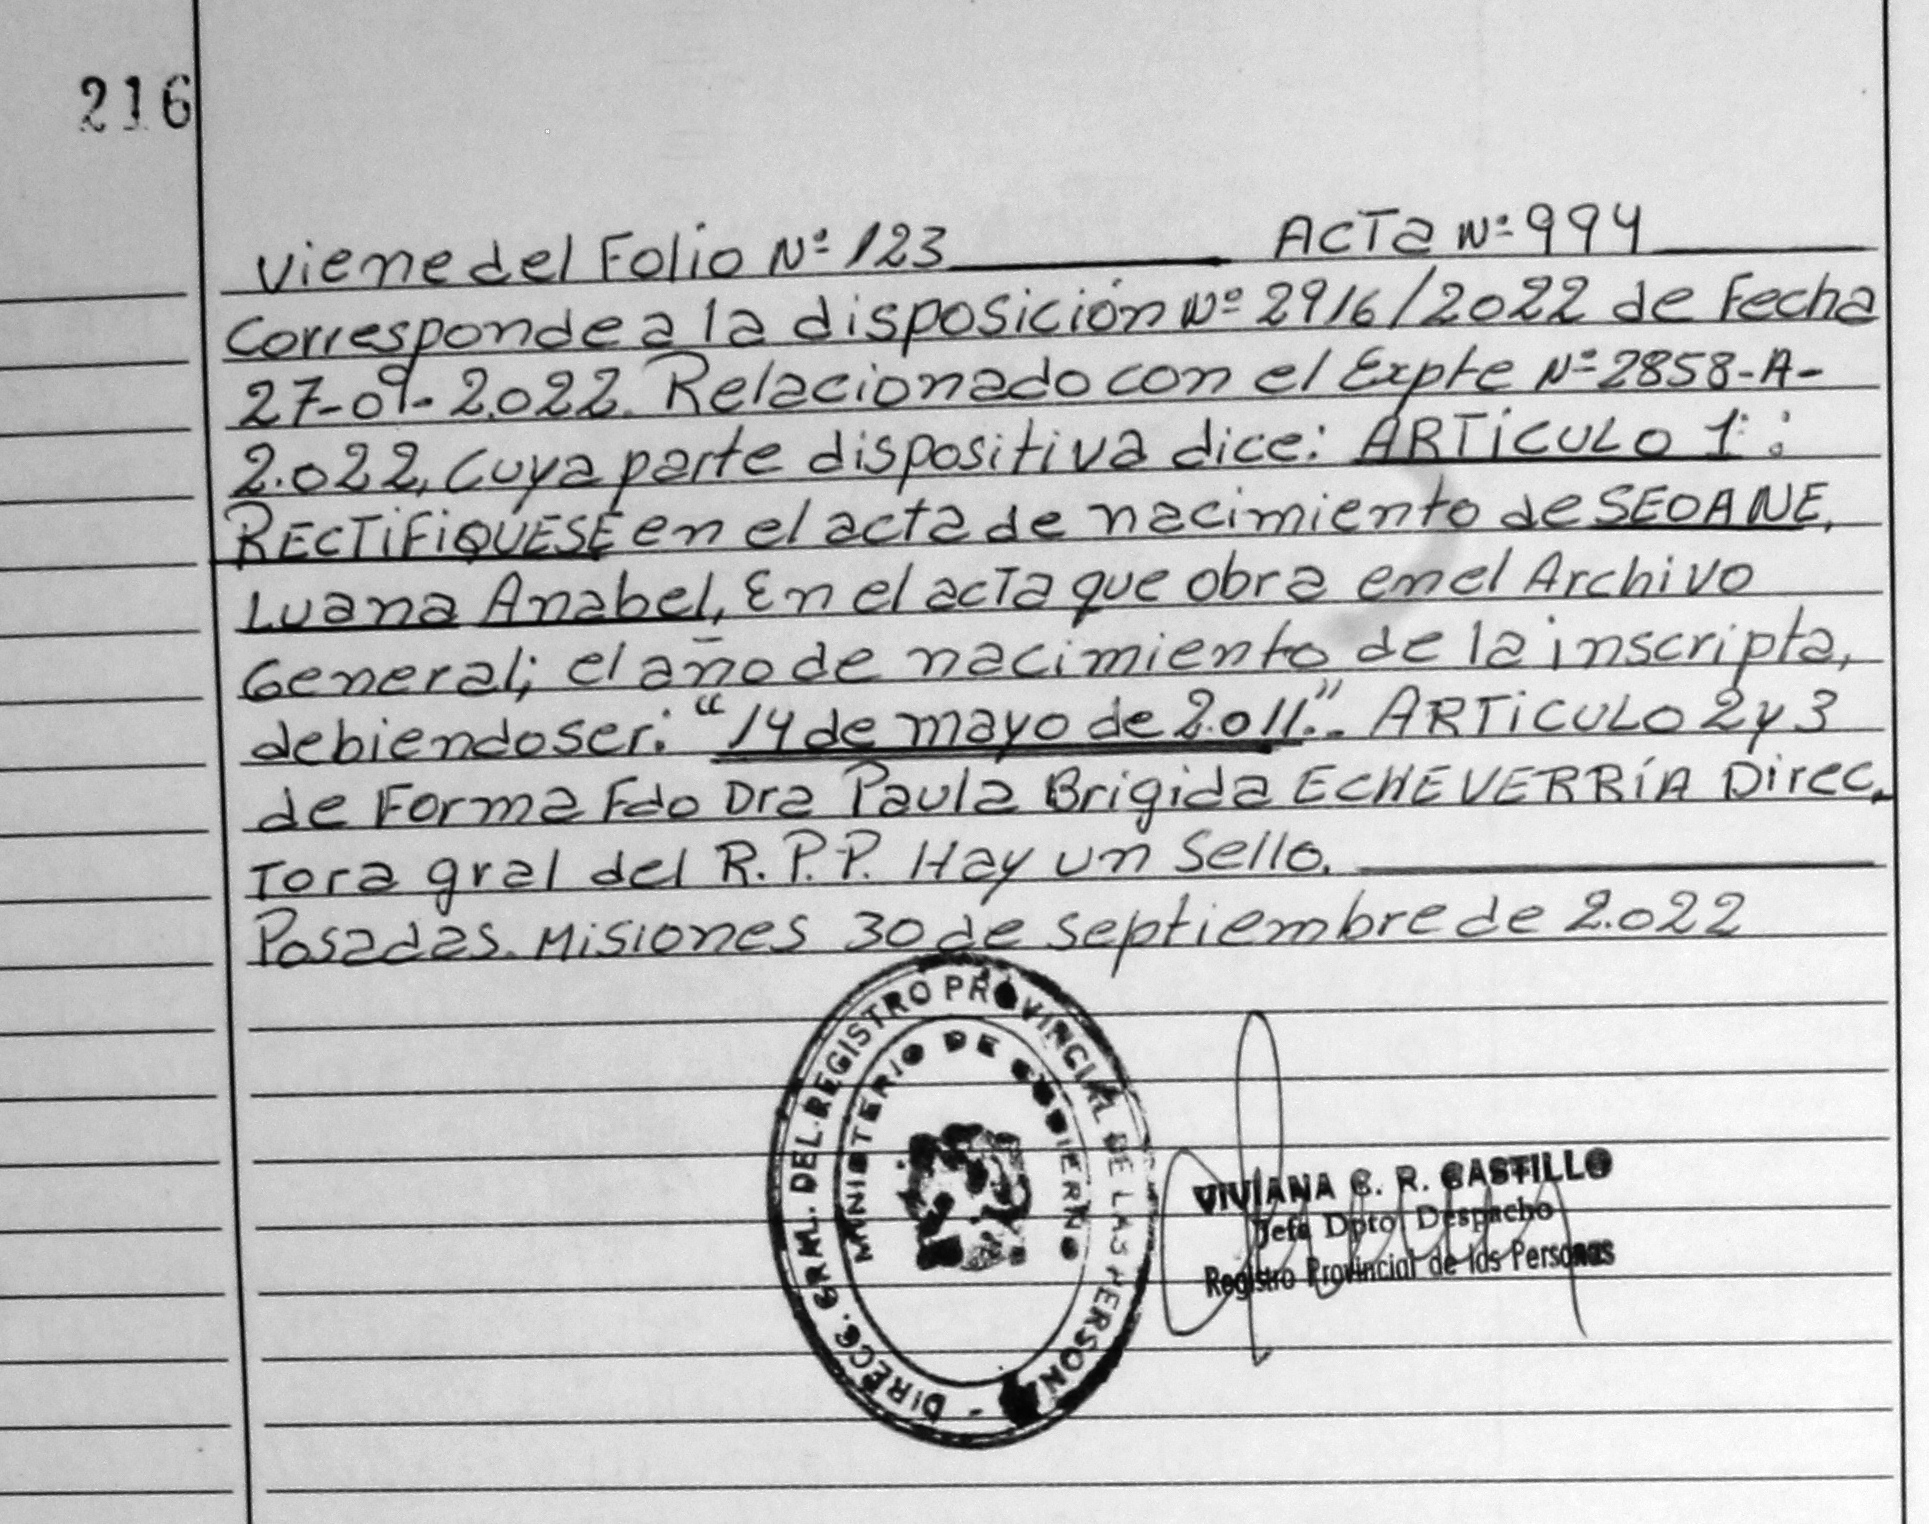 216
Viene del Folio Nº 123 ACTA Nº 994
Corresponde a la disposición Nº 2916/2022 de Fecha
27-09-2.022. Relacionado con el Expte Nº 2858-A-
2.022, Cuya parte dispositiva dice: ARTICULO 1º:
RECTIFIQUESE en el acta de nacimiento de SEOANE,
Luana Anabel, En el acta que obra en el Archivo
General; el año de nacimiento de la inscripta,
debiendo ser: "14 de mayo de 2.011.". ARTICULO 2 y 3
de Forma Fdo Dra Paula Brigida ECHEVERRÍA Direc.
Tora gral del R.P.P. Hay un Sello.
Posadas. Misiones 30 de septiembre de 2.022
DIRECC. GRAL. DEL REGISTRO PROVINCIAL DE LAS PERSONAS
MINISTERIO DE GOBIERNO
VIVIANA C. R. CASTILLO
Jefa Dpto Despacho
Registro Provincial de las Personas